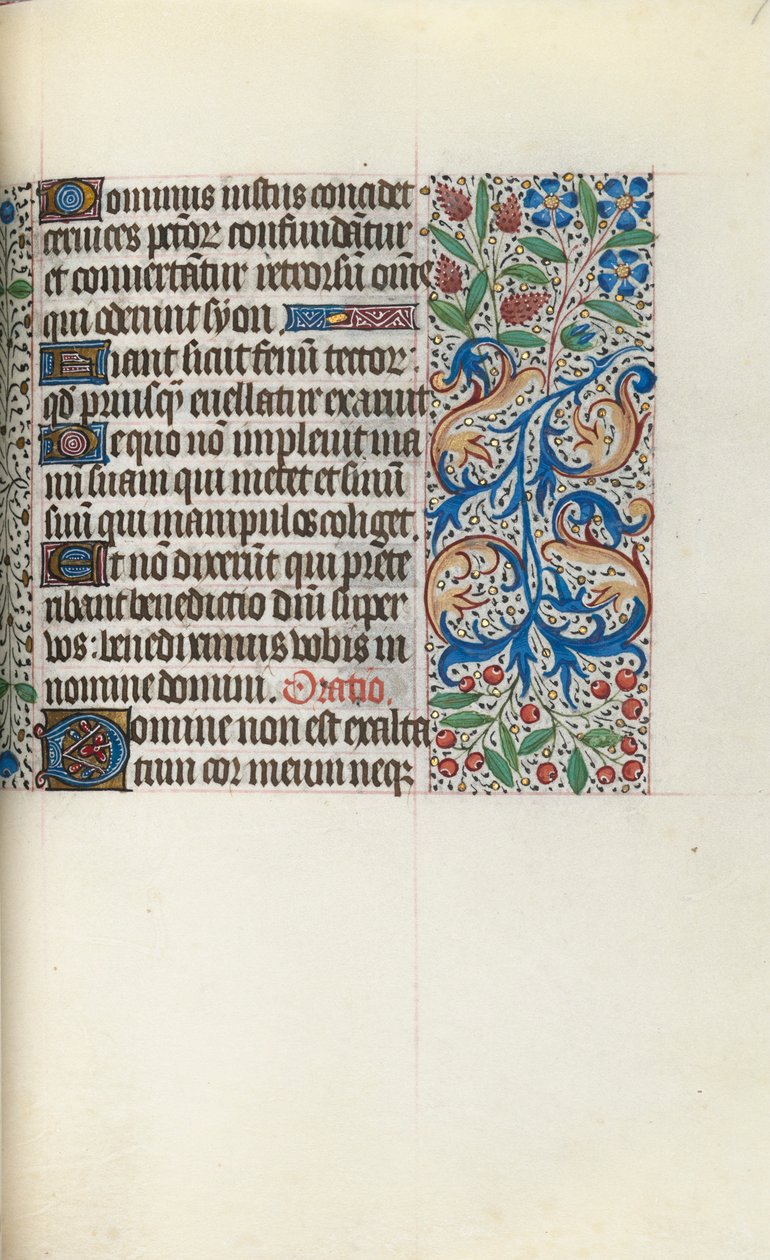 Dominus iustus concidet
cervices pctōꝝ confundātur
et convertātur retrorsū om̄es
qui oderunt syon.
Fiant sicut fenū tectoꝝ:
qd̄ priusq̄ evellatur exaruit.
De quo nō implevit ma
nū suam qui metet et sinū
suū qui manipulos coliget.
Et nō dixerūt qui prete
ribant benedictio dn̄i super
vos: benediximus vobis in
nomine domini. Oratio.
Domine non est exalta
tum cor meum neqꝫ